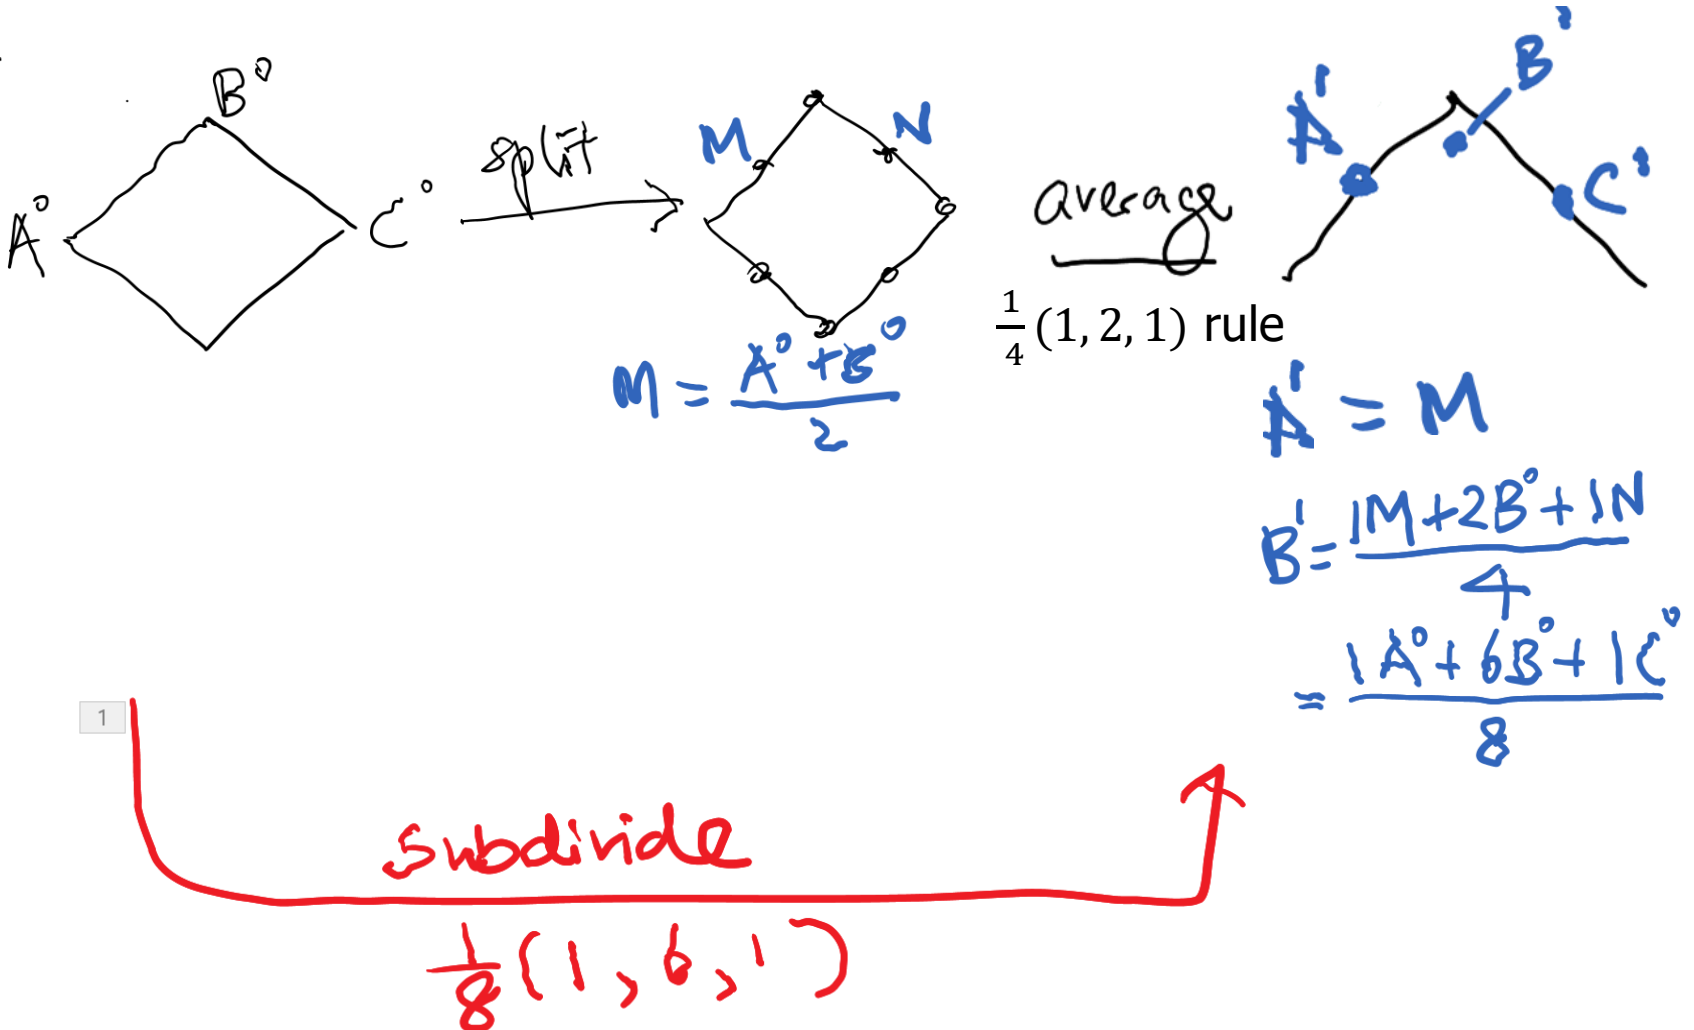 B⁰
A⁰
C⁰
split
M
N
M = (A⁰ + B⁰)/2
average
1/4 (1, 2, 1) rule
A¹
B¹
C¹
A¹ = M
B¹ = (1M + 2B⁰ + 1N)/4
= (1A⁰ + 6B⁰ + 1C⁰)/8
1
subdivide
1/8 (1, 6, 1)